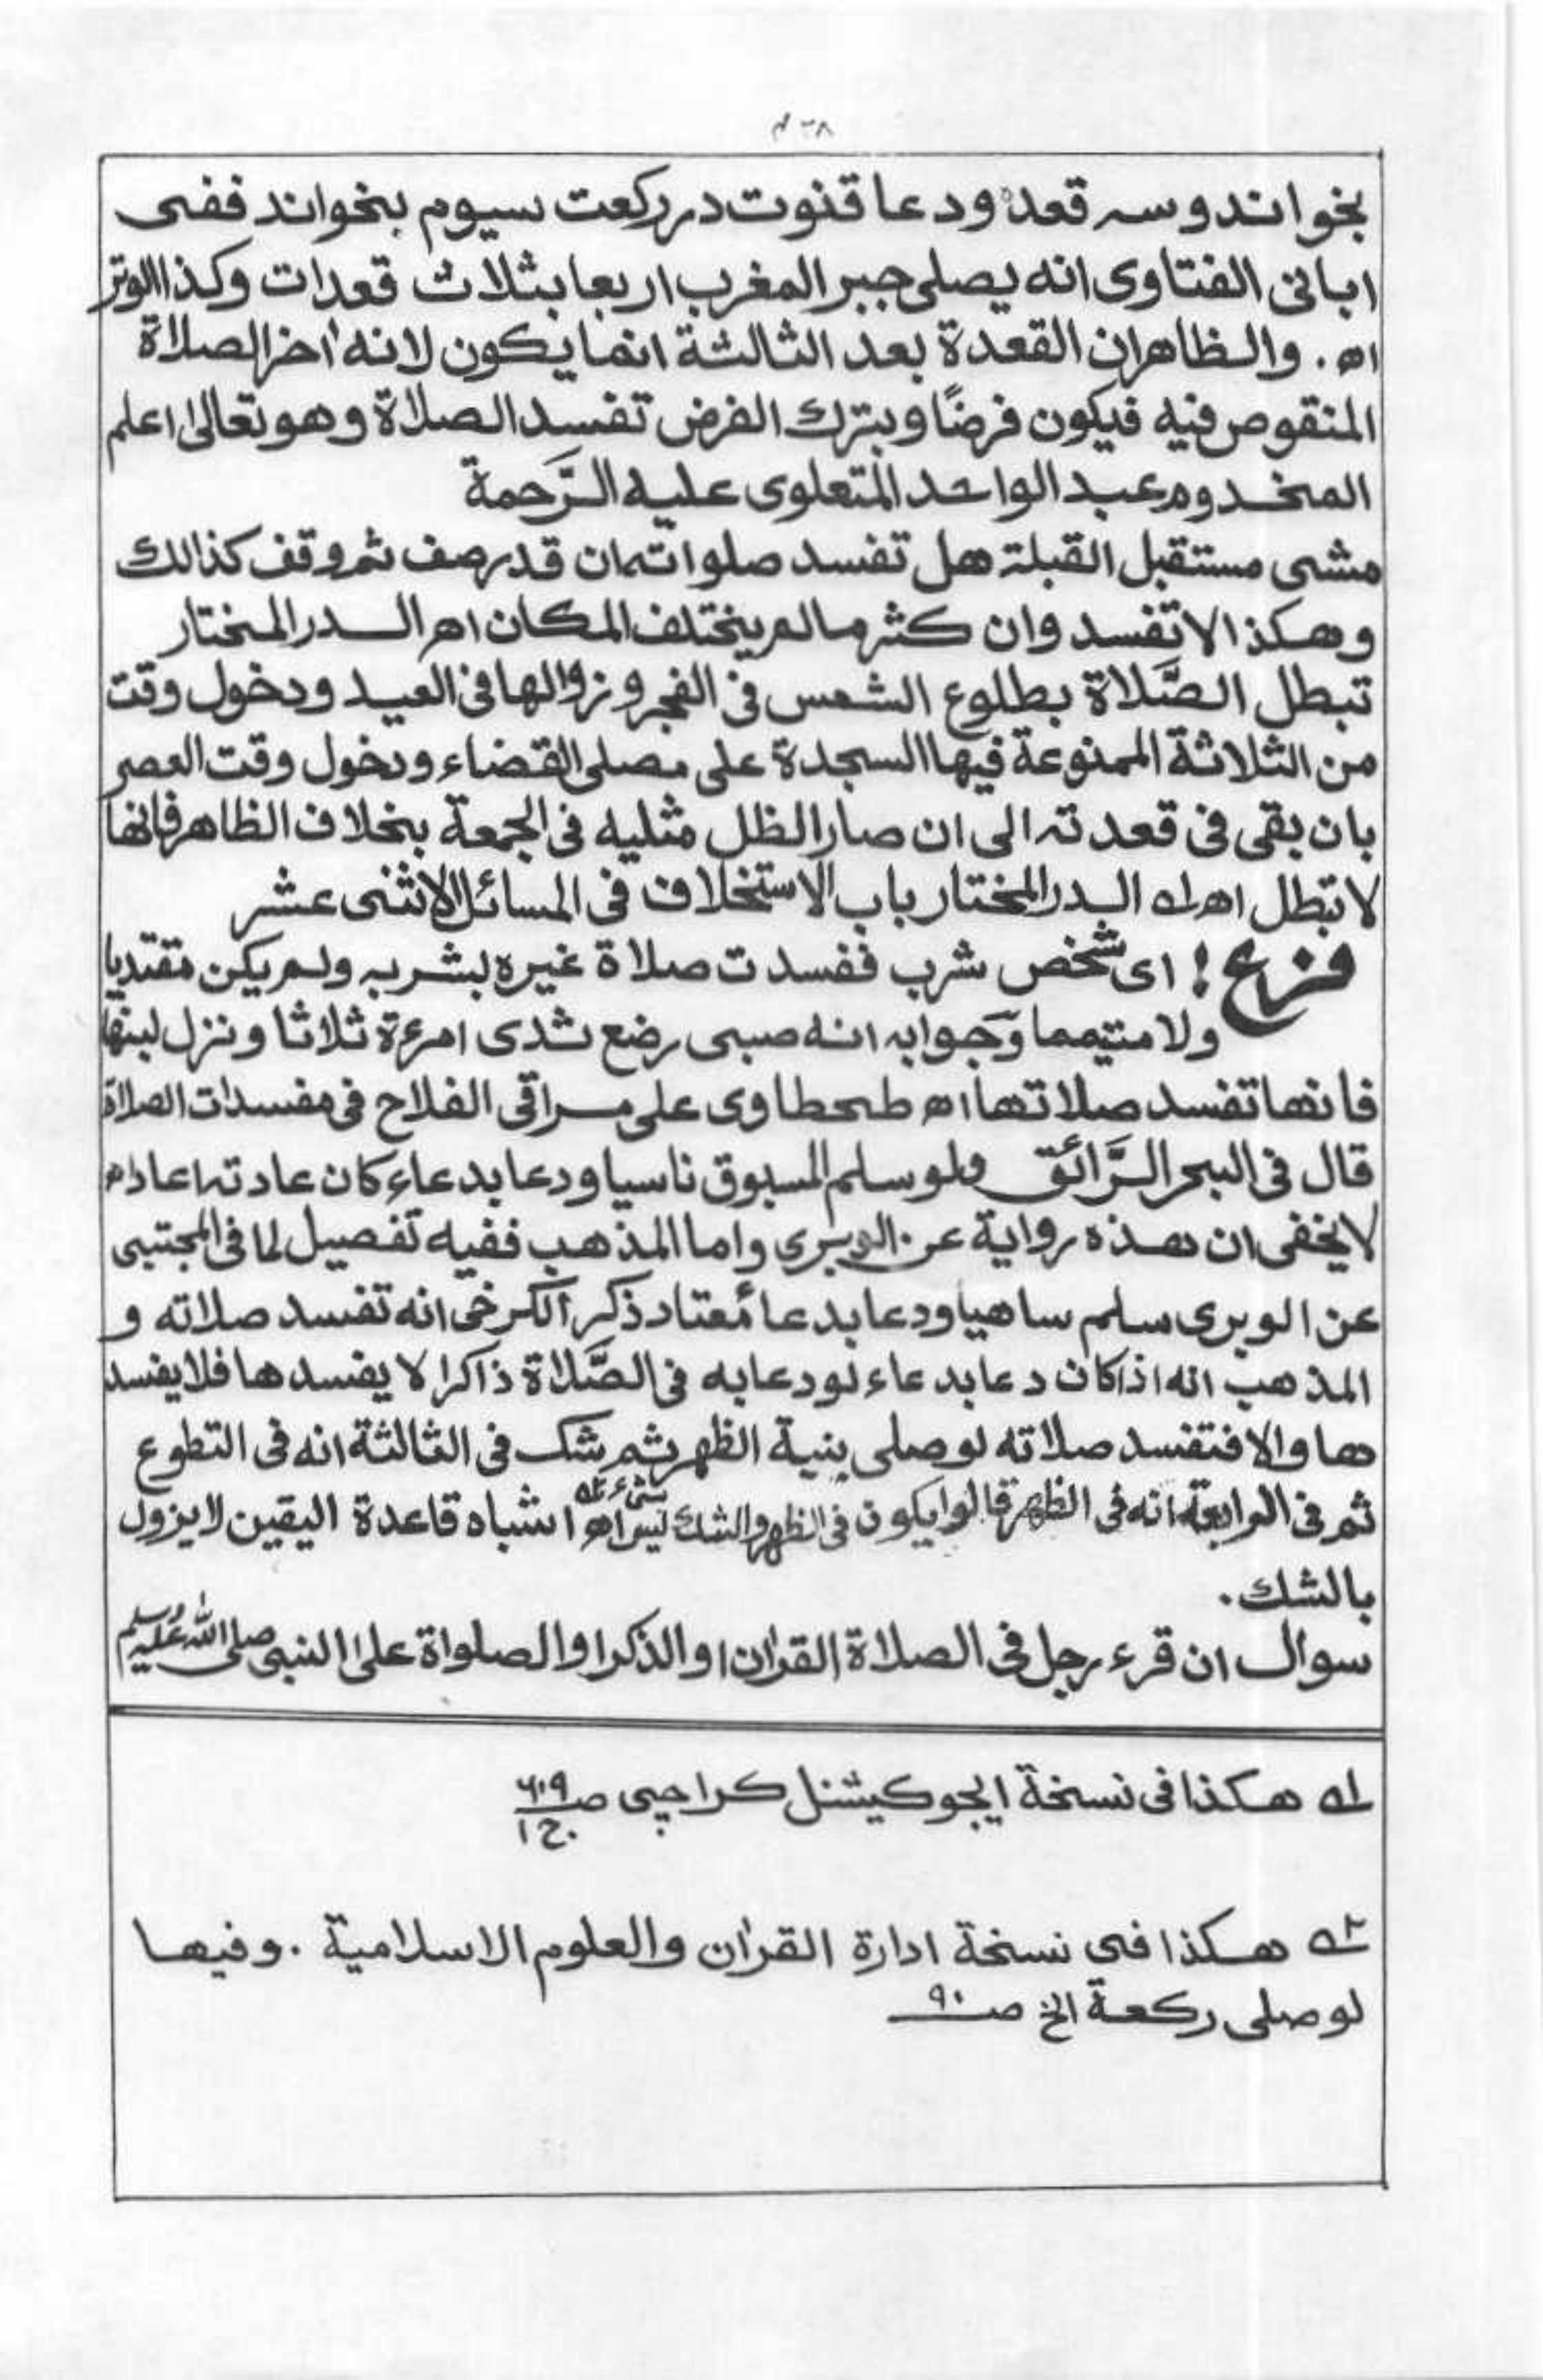 بخواند و سہ قعدہ و دعا قنوت در رکعت سیوم بخواند ففی
ابانی الفتاوی انه یصلی جبر المغرب اربعا بثلاث قعدات وکذا الوتر
اھ. والظاهر ان القعدة بعد الثالثة انما یکون لانه اٰخر الصلاة
المنقوص فیه فیکون فرضًا وبترك الفرض تفسد الصلاة وهو تعالیٰ اعلم
المخدوم عبد الواحد المتعلوی علیه الرَّحمة
مشی مستقبل القبلة هل تفسد صلواته ان قدر صف ثم وقف کذالك
وهکذا لا تفسد وان کثر مالم یختلف المکان اھ الدر المختار
تبطل الصَّلاة بطلوع الشمس فی الفجر و زوالها فی العید ودخول وقت
من الثلاثة الممنوعة فیها السجدة علی مصلی القضاء ودخول وقت العصر
بان بقی فی قعدته الی ان صار الظل مثلیه فی الجمعة بخلاف الظاهر فانها
لا تبطل اھ لہ الدر المختار باب الاستخلاف فی المسائل الاثنی عشر
فرع ! ای شخص شرب ففسدت صلاة غیره بشربه ولم یکن مقتدیا
ولا متیمما وجوابه انه صبی رضع ثدی امرءة ثلاثا ونزل لبنها
فانها تفسد صلاتها اھ طحطاوی علی مراقی الفلاح فی مفسدات الصلاة
قال فی البحر الرَّائق ولو سلم المسبوق ناسیا ودعا بدعاء کان عادته اعاد اھ
لا یخفی ان هذه روایة عن الوبری واما المذهب ففیه تفصیل لما فی المجتبی
عن الوبری سلم ساهیا ودعا بدعا مُعتاد ذکر الکرخی انه تفسد صلاته و
المذهب انه اذا کان دعا بدعاء لو دعا به فی الصَّلاة ذاکرا لا یفسدها فلا یفسد
ها والا فتفسد صلاته لو صلی بنیة الظهر ثم شك فی الثالثة انه فی التطوع
ثم فی الرابعة انه فی الظهر قالوا یکون فی الظهر والشك لیس بشیء ٢ہ اھ اشباه قاعدة الیقین لا یزول
بالشك.
سوال ان قرء رجل فی الصلاة القراٰن او الذکر او الصلواة علیٰ النبی صلی الله علیه وسلم
لہ هکذا فی نسخة ایجوکیشنل کراچی صـ ٦٠٩ ج ١
٢ہ هکذا فی نسخة ادارة القراٰن والعلوم الاسلامیة . وفیها
لو صلی رکعة الخ صـ ٩٠